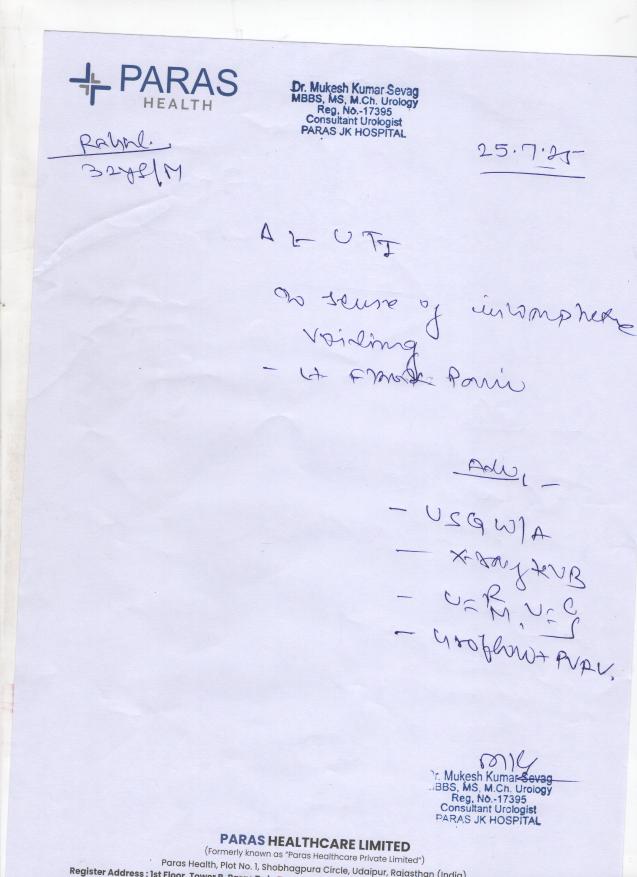 PARAS
HEALTH
Dr. Mukesh Kumar Sevag
MBBS, MS, M.Ch. Urology
Reg. No.-17395
Consultant Urologist
PARAS JK HOSPITAL
32ys/M
25.7.25
UTI
sense of incomplete
voiding
- Lt flank Pain
Adv,-
- USG W/A
- X-ray KUB
- U=R/M, U=C/S
- Uroflow+PVRV.
Dr. Mukesh Kumar Sevag
MBBS, MS, M.Ch. Urology
Reg. No.-17395
Consultant Urologist
PARAS JK HOSPITAL
PARAS HEALTHCARE LIMITED
(Formerly known as "Paras Healthcare Private Limited")
Paras Health, Plot No. 1, Shobhagpura Circle, Udaipur, Rajasthan (India)
Register Address : 1st Floor, Tower B,